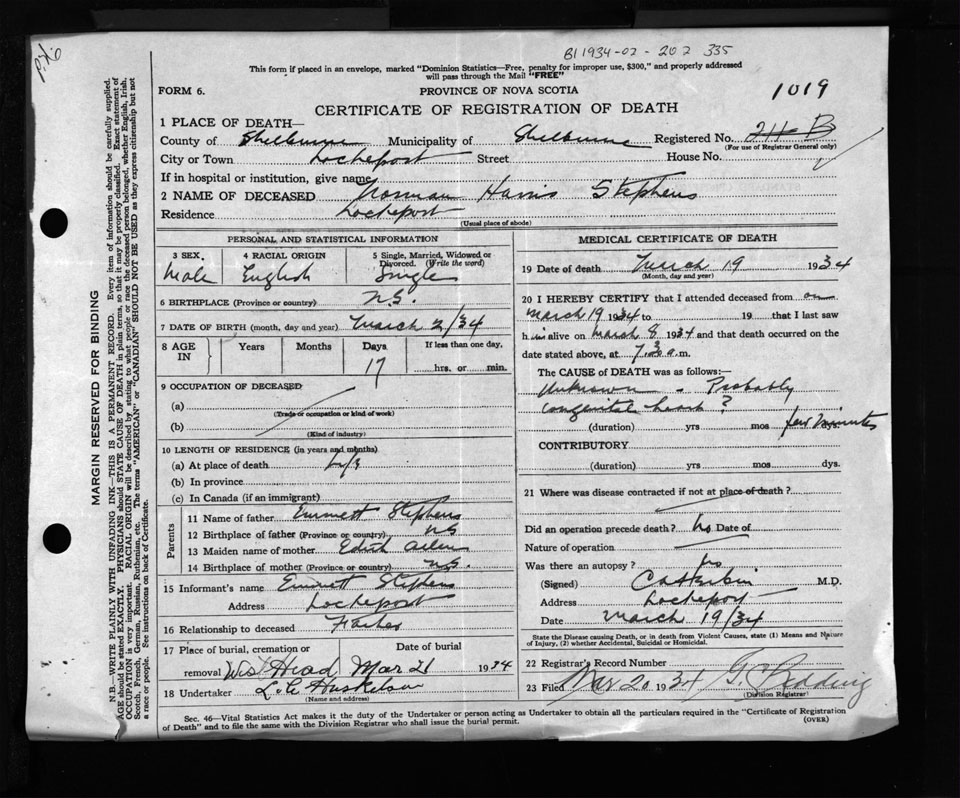 BI 1934-02-202 335
This form if placed in an envelope, marked "Dominion Statistics—Free, penalty for improper use, $300," and properly addressed
will pass through the Mail "FREE"
FORM 6.
PROVINCE OF NOVA SCOTIA
1019
CERTIFICATE OF REGISTRATION OF DEATH
1 PLACE OF DEATH—
County of Shelburne Municipality of Shelburne Registered No.
(For use of Registrar General only)
City or Town Lockeport Street House No.
If in hospital or institution, give name
2 NAME OF DECEASED Norman Harris Stephens
Residence Lockeport
(Usual place of abode)
PERSONAL AND STATISTICAL INFORMATION
3 SEX. 4 RACIAL ORIGIN 5 Single, Married, Widowed or
Divorced. (Write the word)
Male English Single
6 BIRTHPLACE (Province or country) N.S.
7 DATE OF BIRTH (month, day and year) March 2/34
8 AGE IN Years Months Days If less than one day.
17 hrs. or min.
9 OCCUPATION OF DECEASED
(a)
(Trade or occupation or kind of work)
(b)
(Kind of industry)
10 LENGTH OF RESIDENCE (in years and months)
(a) At place of death Life
(b) In province
(c) In Canada (if an immigrant)
Parents
11 Name of father Emmett Stephens
12 Birthplace of father (Province or country) N.S.
13 Maiden name of mother Edith
14 Birthplace of mother (Province or country) N.S.
15 Informant's name Emmett Stephens
Address Lockeport
16 Relationship to deceased Father
17 Place of burial, cremation or Date of burial
removal West Head Mar 21 1934
18 Undertaker
(Name and address)
MEDICAL CERTIFICATE OF DEATH
19 Date of death March 19 1934
(Month, day and year)
20 I HEREBY CERTIFY that I attended deceased from on
March 19 1934 to 19 that I last saw
him alive on March 8 1934 and that death occurred on the
date stated above, at 7.30 a.m.
The CAUSE of DEATH was as follows:—
Unknown - Probably
congenital heart?
(duration) yrs mos few minutes
CONTRIBUTORY
(duration) yrs mos dys.
21 Where was disease contracted if not at place of death?
Did an operation precede death? No Date of
Nature of operation
Was there an autopsy? No
(Signed) M.D.
Address Lockeport
Date March 19/34
State the Disease causing Death, or in death from Violent Causes, state (1) Means and Nature
of Injury, (2) whether Accidental, Suicidal or Homicidal.
22 Registrar's Record Number
23 Filed Mar 20 1934
(Division Registrar)
Sec. 46—Vital Statistics Act makes it the duty of the Undertaker or person acting as Undertaker to obtain all the particulars required in the "Certificate of Registration
of Death" and to file the same with the Division Registrar who shall issue the burial permit. (OVER)
MARGIN RESERVED FOR BINDING
N.B.—WRITE PLAINLY WITH UNFADING INK—THIS IS A PERMANENT RECORD. Every item of information should be carefully supplied.
AGE should be stated EXACTLY. PHYSICIANS should STATE CAUSE OF DEATH in plain terms, so that it may be properly classified. Exact statement of
OCCUPATION is very important. RACIAL ORIGIN will be described by stating to what people or race the deceased person belonged, whether English, Irish,
Scotch, French, German, Russian, Ruthenian, etc. The terms "AMERICAN" or "CANADIAN" SHOULD NOT BE USED as they express citizenship but not
a race or people. See instructions on back of Certificate.